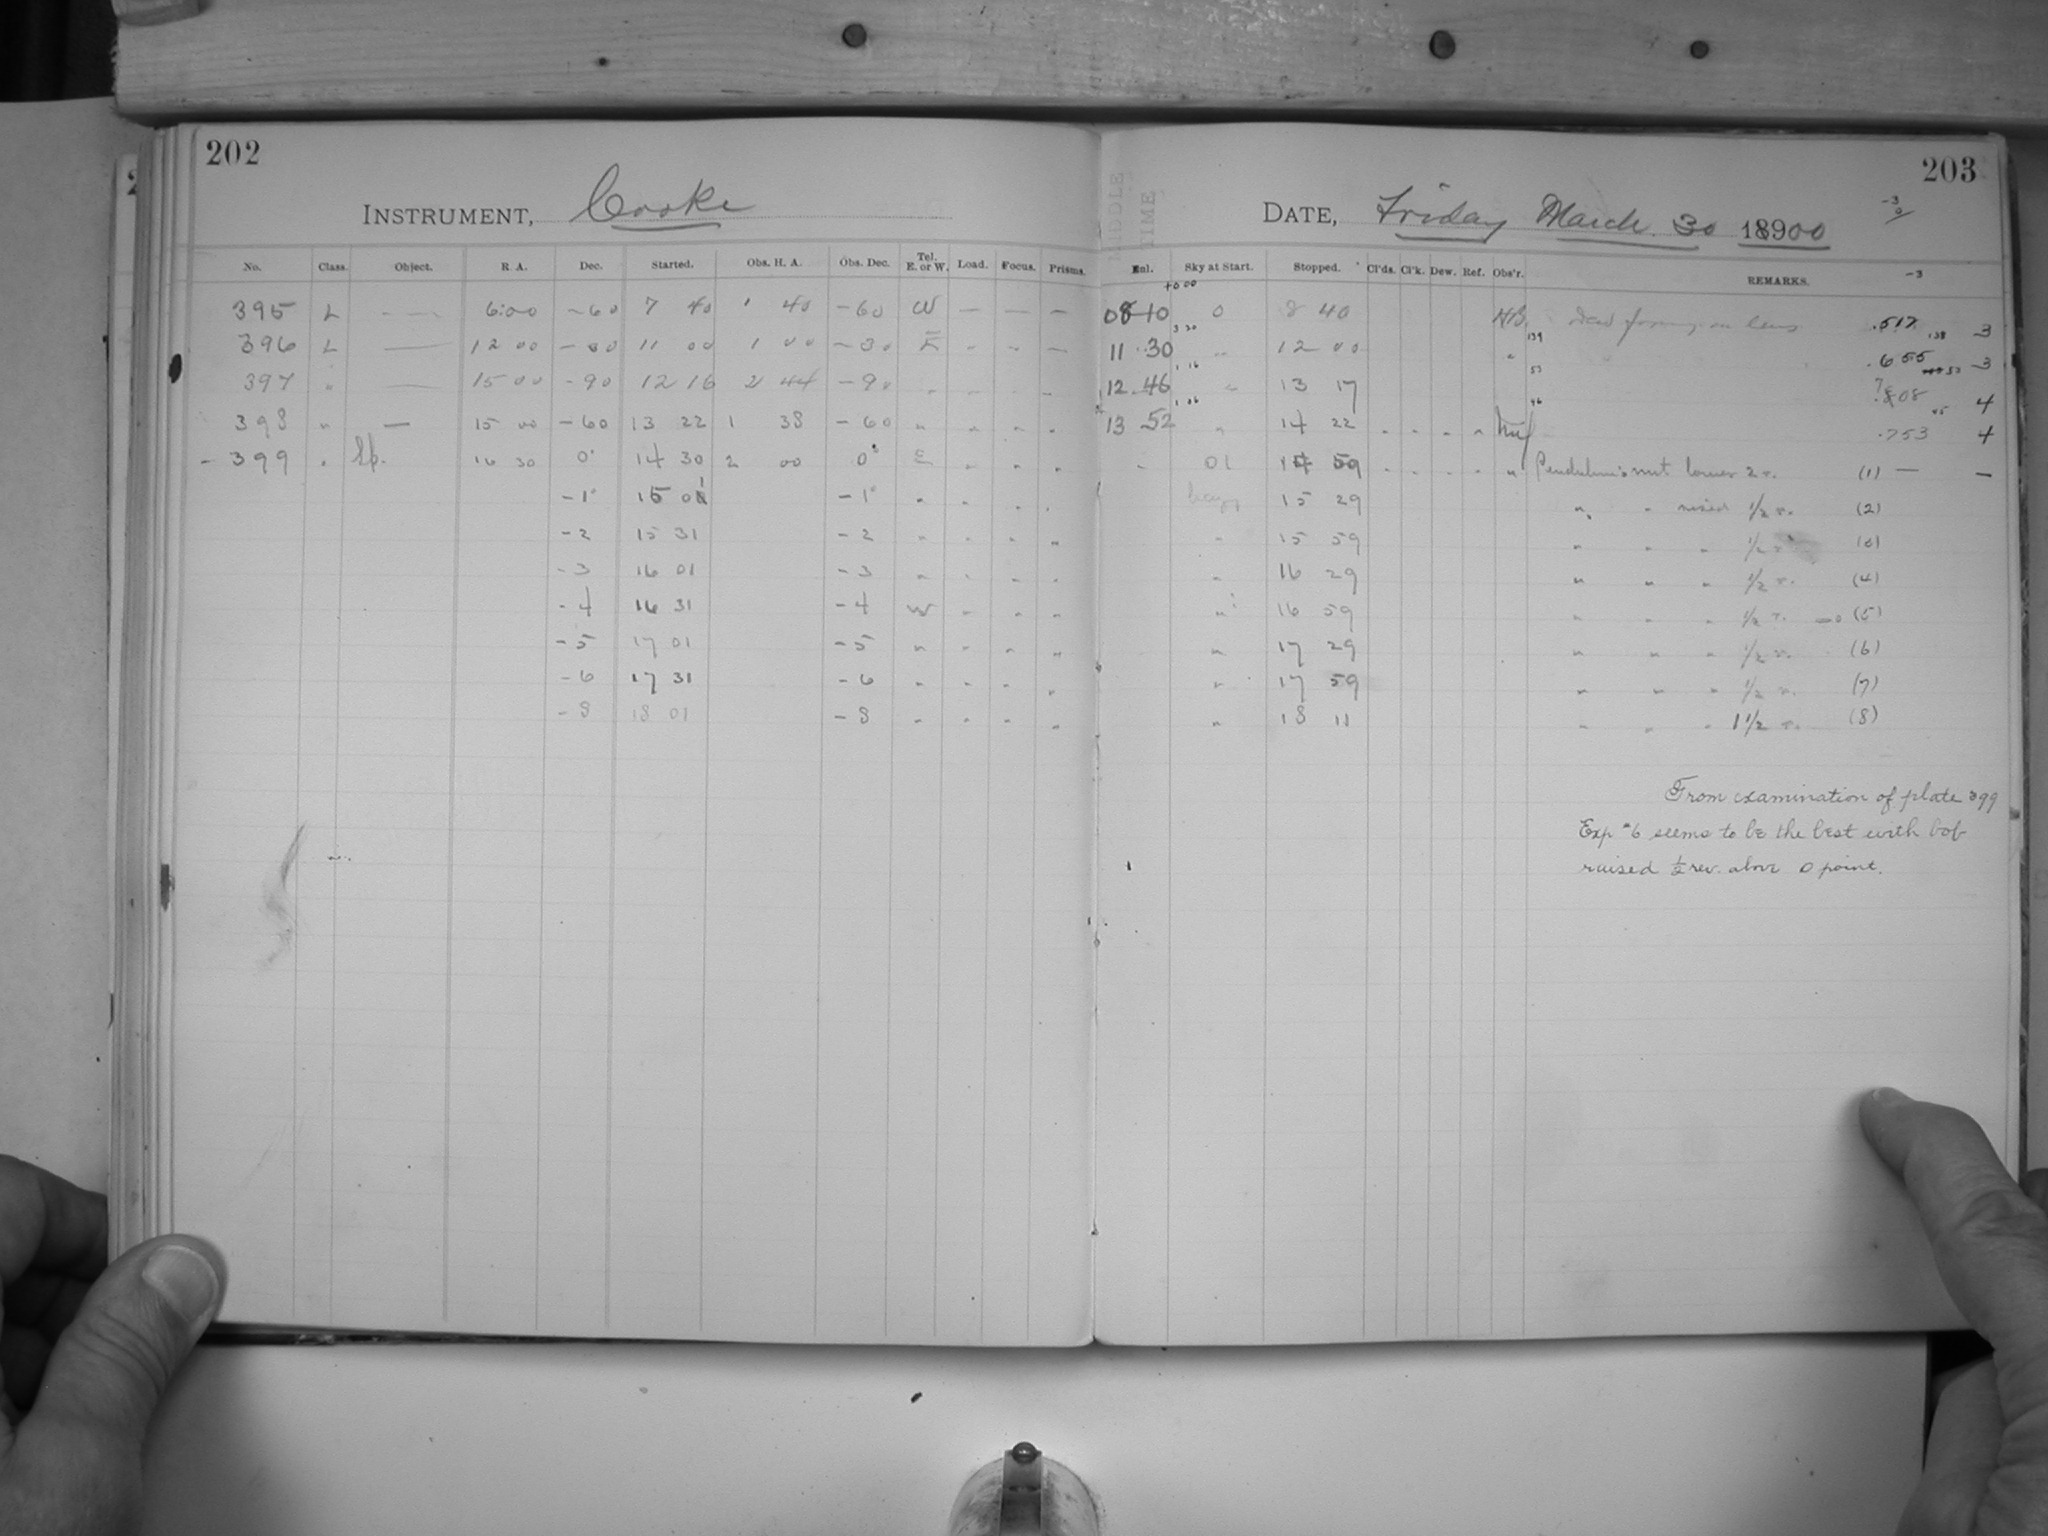 202
INSTRUMENT, Cooke
No. Class. Object. R. A. Dec. Started. Obs. H. A. Obs. Dec. Tel. E. or W. Load. Focus. Prisms.
395 L — 6 00 -60 7 40 1 40 -60 W — — —
396 L — 12 00 -30 11 00 1 00 -30 E " " —
397 " — 15 00 -90 12 16 2 44 -90 " " " "
398 " — 15 00 -60 13 22 1 38 -60 " " " "
- 399 " Sp. 16 30 0° 14 30 2 00 0° E " " "
-1° 15 01 -1° " " " "
-2 15 31 -2 " " " "
-3 16 01 -3 " " " "
-4 16 31 -4 W " " "
-5 17 01 -5 " " " "
-6 17 31 -6 " " " "
-8 18 01 -8 " " " "
MIDDLE TIME
203
DATE, Friday March 30 18900
-3
Sky at Start. Stopped. Cl'ds. Cl'k. Dew. Ref. Obs'r. REMARKS. -3
08 10 0 8 40 HB. Dew forming on lens .517 138 3
3 20 139
11 30 " 12 00 " .655 53 3
1 16 53
12 46 " 13 17 4
1 06 46
13 52 " 14 22 " " " " .753 4
" 01 14 59 " " " " " Pendulum's nut lower 2 r. (1) — —
hazy 15 29 " " raised 1/2 r. (2)
" 15 59 " " " 1/2 r.
" 16 29 " " " 1/2 r. (4)
" 16 59 " " " 1/2 r. (5)
" 17 29 " " " 1/2 r. (6)
" 17 59 " " " 1/2 r. (7)
" 18 11 " " " 1 1/2 r. (8)
From examination of plate 399
Exp #6 seems to be the best with bob
raised 1/2 rev. above 0 point.